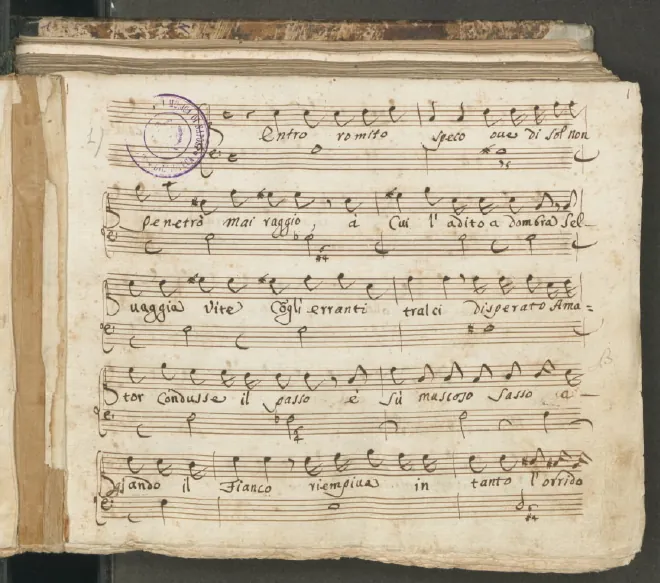 Entro romito speco ove di sol non
penetrò mai raggio, à Cui l'adito adombra Sel-
uaggia Vite Cogli erranti tralci disperato Ama=
tor Condusse il passo e sù muscoso Sasso a-
giando il Fianco riempiua in tanto l'orrido